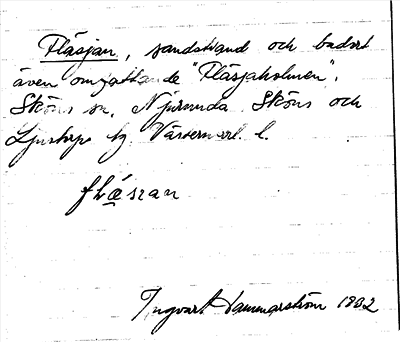 Fläsjan, sandstrand och badort
även omfattande "Fläsjaholmen".
Sköns sn, Njurunda Sköns och
Ljustorps tg Västernorrl. l.
flæ´sɩan
Ingvar Hammarström 1932